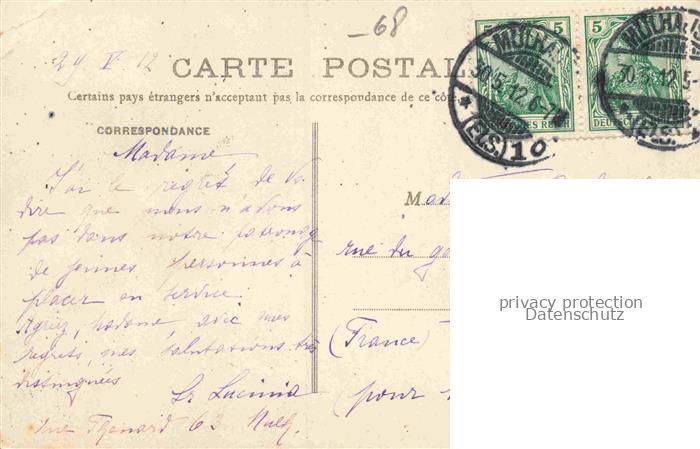 -68
29 V 12
CARTE POSTAL
Certains pays étrangers n'acceptant pas la correspondance de ce côté
CORRESPONDANCE
5 5 5
MÜLHA
30.5.12.6-7
(ELS.) 1 o
ES REICH
DEUTSCH
MÜLHA
30.5.12.
(ELS.)
Madame
J'ai le regret de vs
dire que nous n'avons
pas dans notre patronag
de jeunes personnes à
placer en service.
Agréez, madame, avec mes
regrets, mes salutations très
distinguées
Sr Lucinia
rue Thenard 63 Mulh.
Mad
rue du ga
(France)
pour
privacy protection
Datenschutz